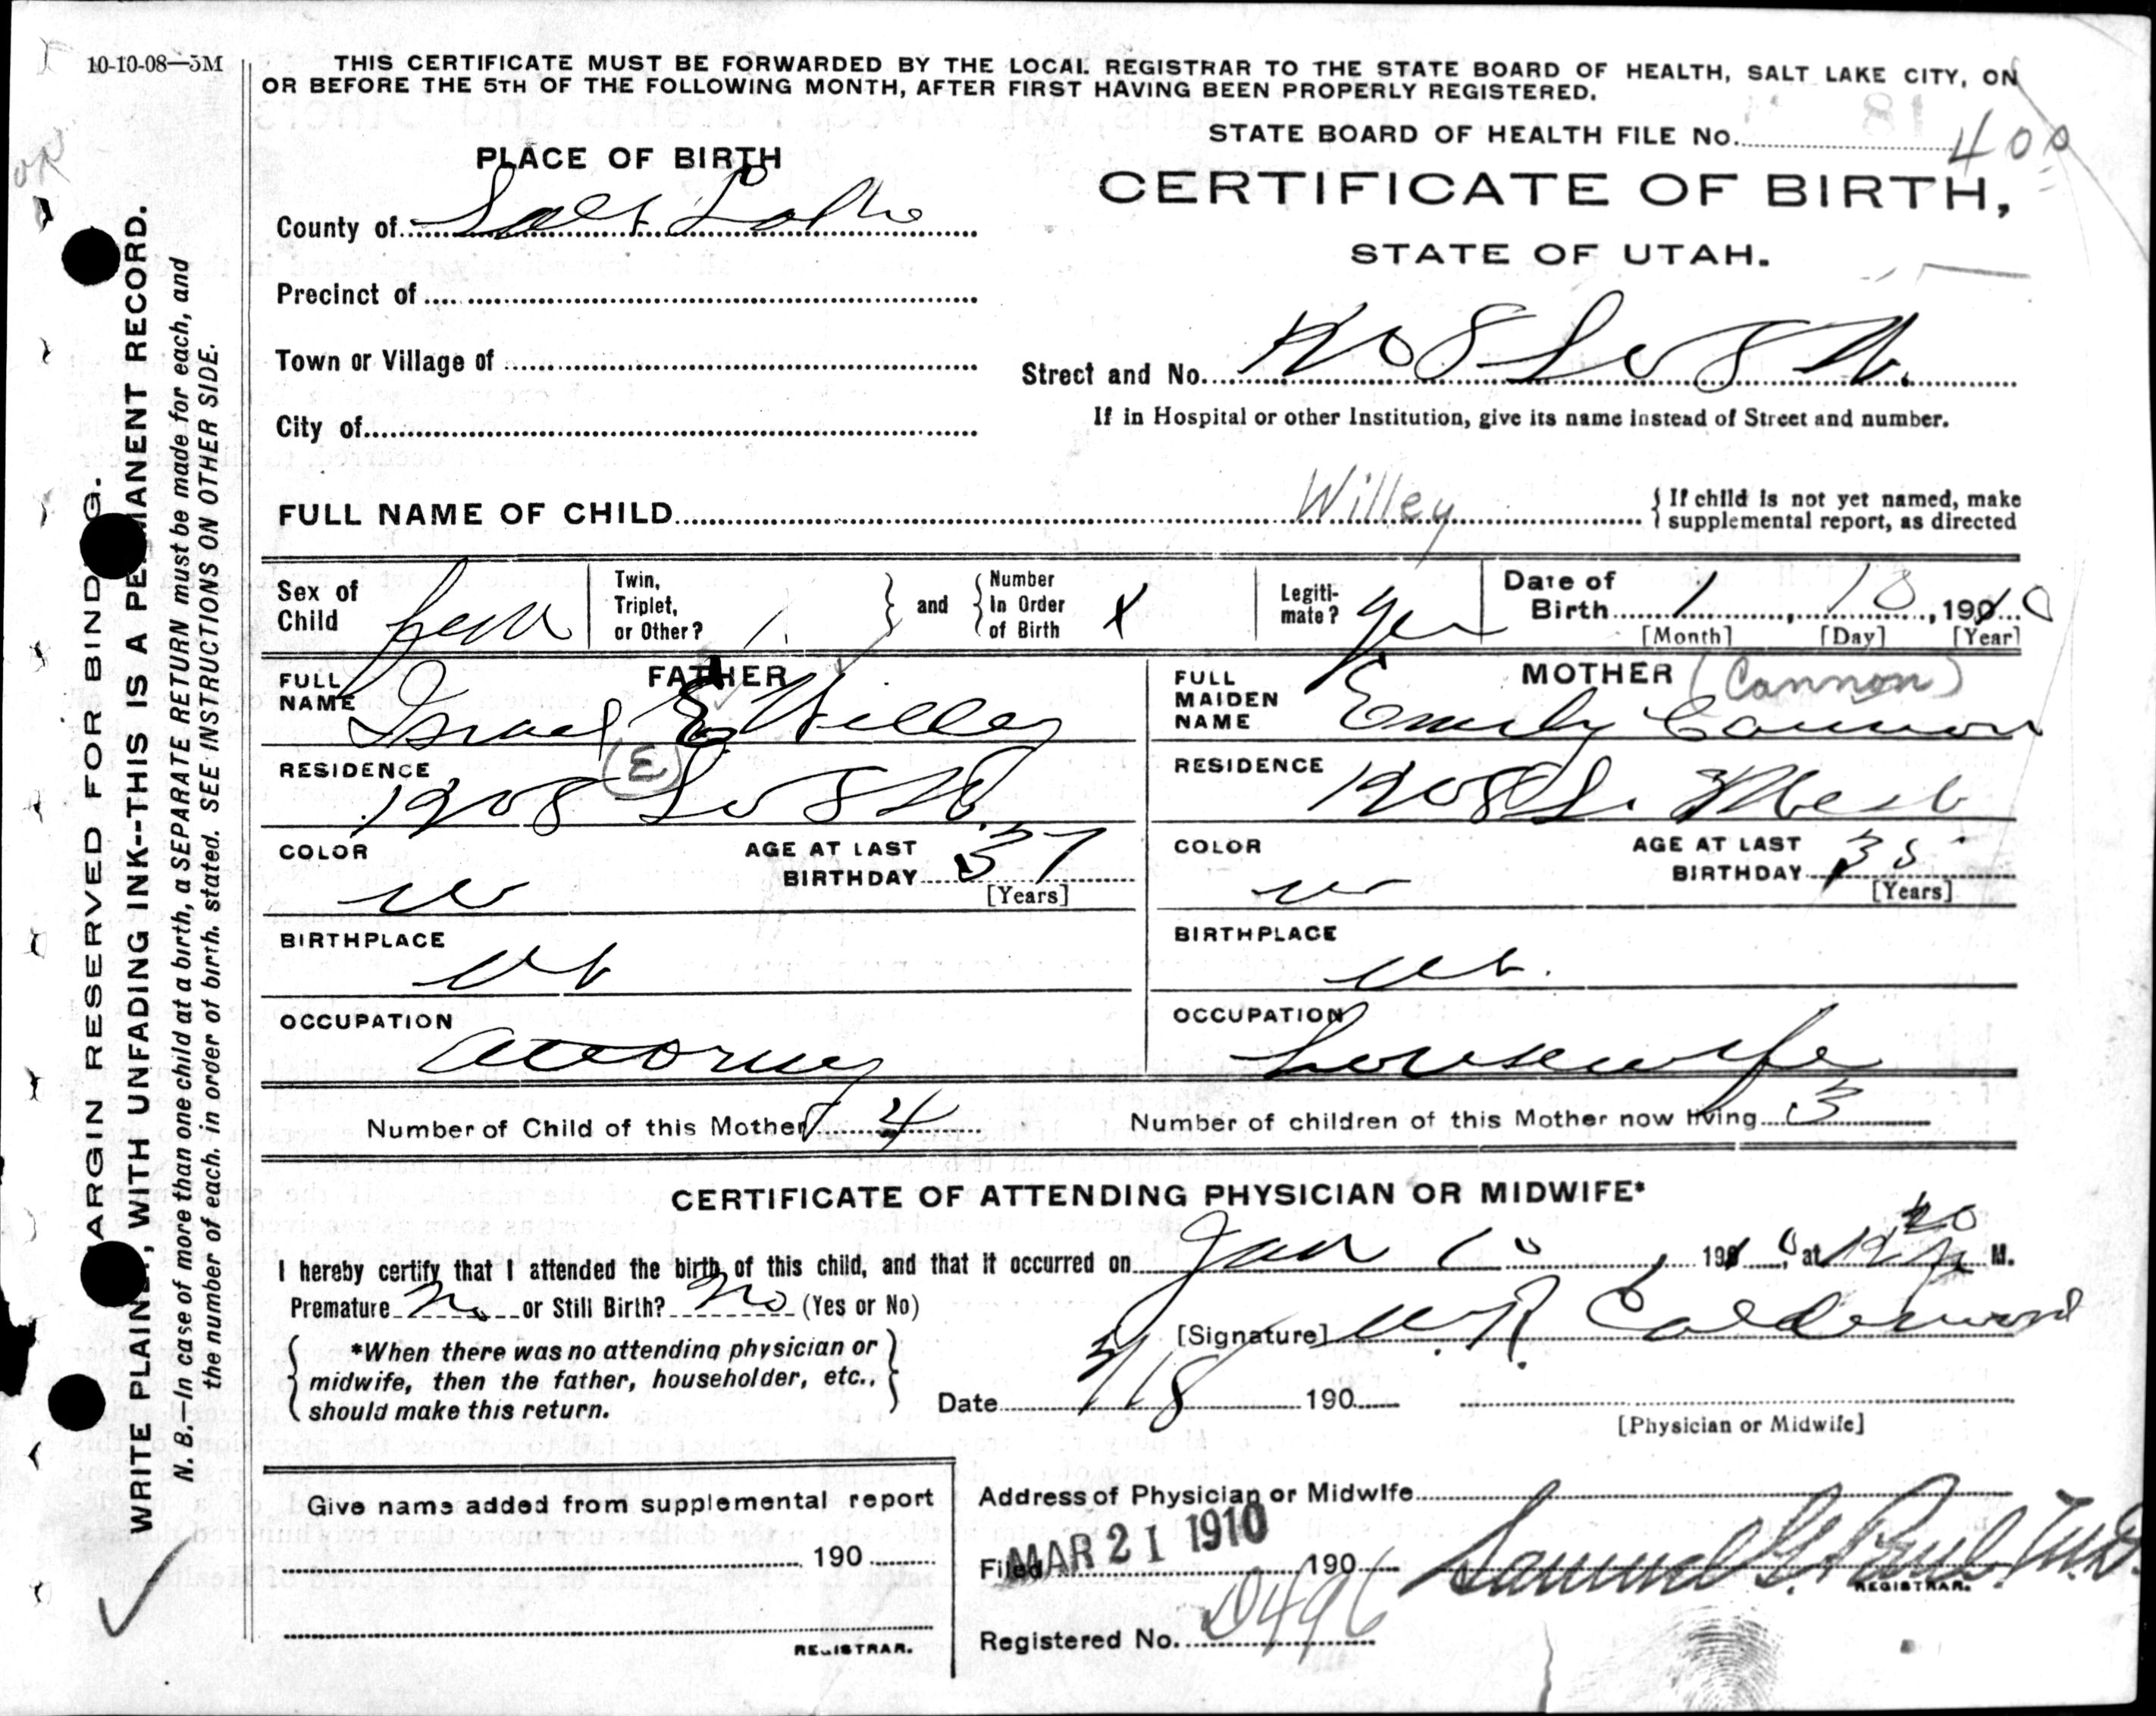 10-10-08—5M
THIS CERTIFICATE MUST BE FORWARDED BY THE LOCAL REGISTRAR TO THE STATE BOARD OF HEALTH, SALT LAKE CITY, ON
OR BEFORE THE 5TH OF THE FOLLOWING MONTH, AFTER FIRST HAVING BEEN PROPERLY REGISTERED.
STATE BOARD OF HEALTH FILE No. 400
PLACE OF BIRTH
CERTIFICATE OF BIRTH,
STATE OF UTAH.
County of Salt Lake
Precinct of
Town or Village of
Street and No. 8 So 8 W.
If in Hospital or other Institution, give its name instead of Street and number.
City of
FULL NAME OF CHILD Willey
{ If child is not yet named, make
supplemental report, as directed
Sex of Child fem
Twin, Triplet, or Other? 1
and
Number In Order of Birth
Legiti- mate? Yes
Date of Birth 1, 10, 1910
[Month] [Day] [Year]
FATHER
FULL NAME Israel E Willey
(E)
RESIDENCE 1908 So 8 W.
COLOR w
AGE AT LAST BIRTHDAY 37
[Years]
BIRTHPLACE Ut
OCCUPATION Attorney
MOTHER (Cannon)
FULL MAIDEN NAME Emily Cannon
RESIDENCE 1908 So. 8 West
COLOR w
AGE AT LAST BIRTHDAY 35
[Years]
BIRTHPLACE Ut.
OCCUPATION housewife
Number of Child of this Mother 4
Number of children of this Mother now living 3
CERTIFICATE OF ATTENDING PHYSICIAN OR MIDWIFE*
I hereby certify that I attended the birth of this child, and that it occurred on Jan 10, 1910, at M.
Premature No or Still Birth? No (Yes or No)
[Signature] Calderwood
*When there was no attending physician or
midwife, then the father, householder, etc.,
should make this return.
Date 3/18 190
[Physician or Midwife]
Give name added from supplemental report
190
REGISTRAR.
Address of Physician or Midwife
Filed MAR 21 1910 190
Samuel G. Paul, M.D.
REGISTRAR.
Registered No. D496
MARGIN RESERVED FOR BINDING.
WRITE PLAINLY, WITH UNFADING INK--THIS IS A PERMANENT RECORD.
N. B.—In case of more than one child at a birth, a SEPARATE RETURN must be made for each, and
the number of each, in order of birth, stated. SEE INSTRUCTIONS ON OTHER SIDE.